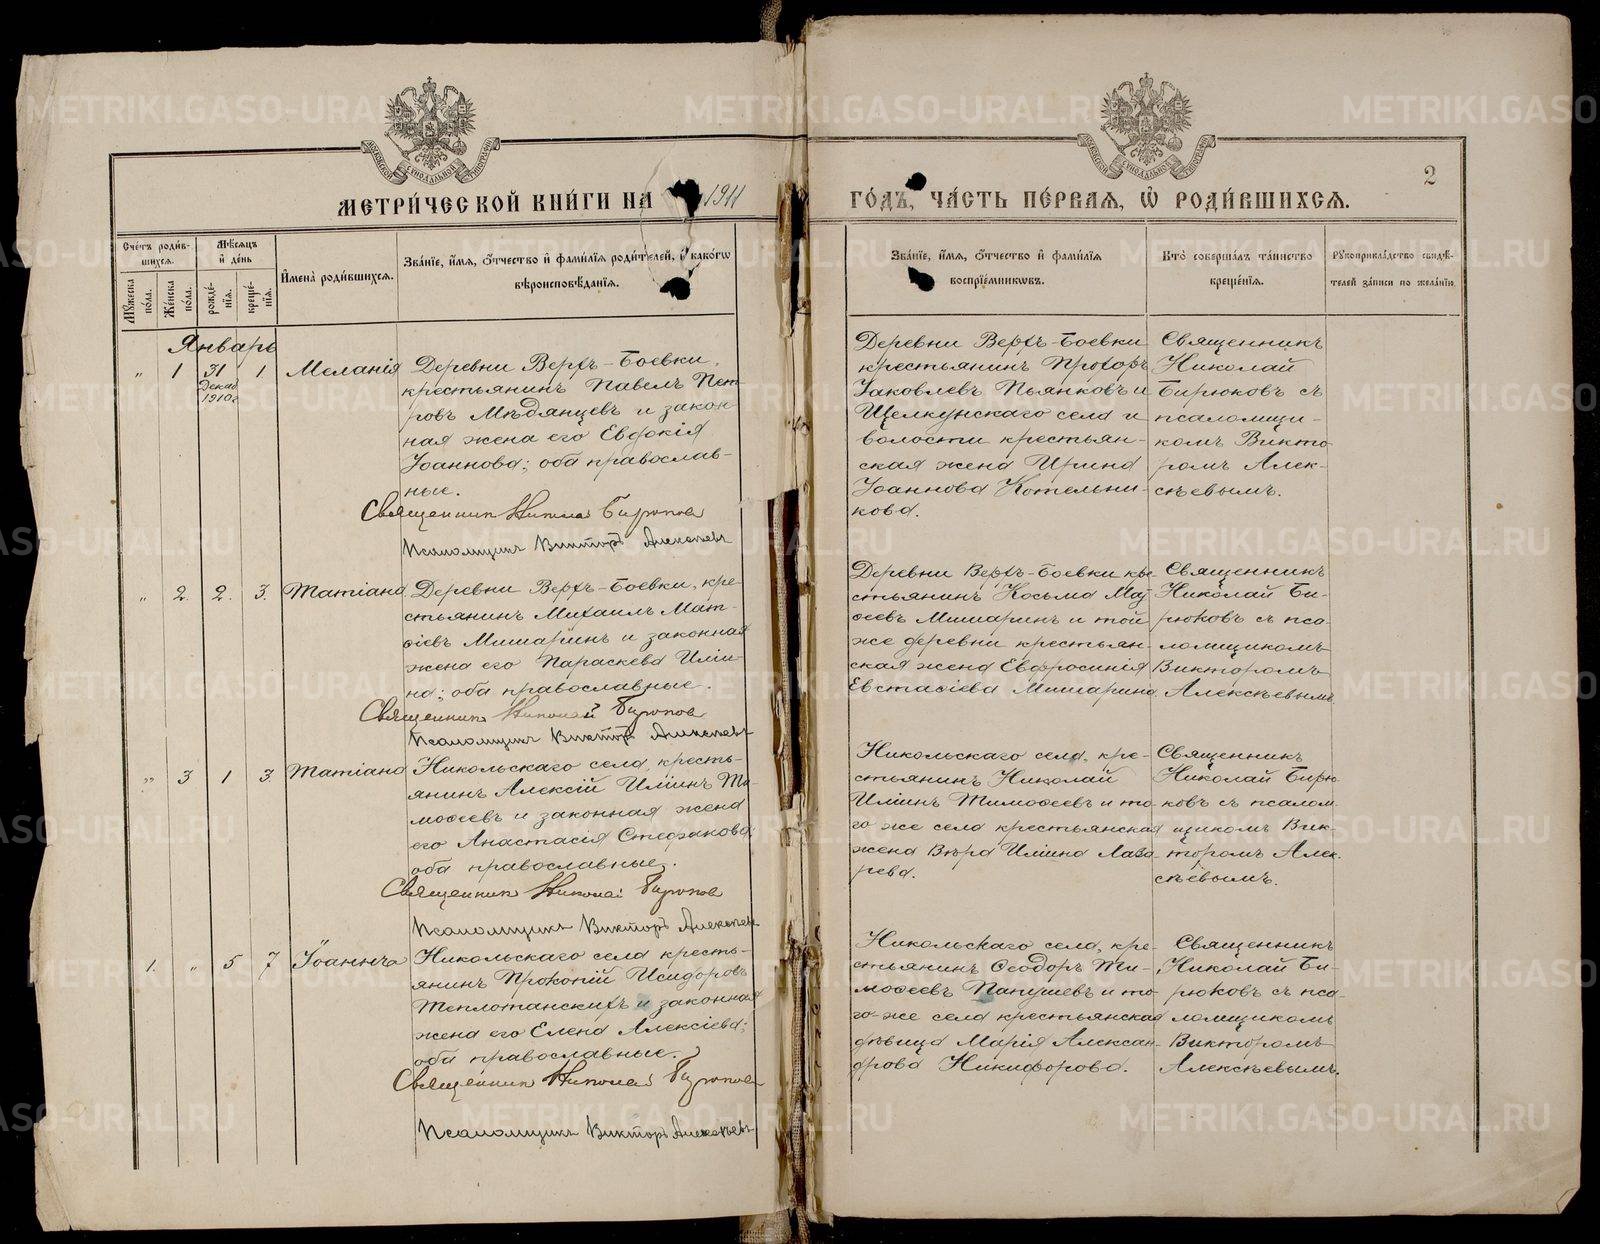 МЕТРИ́ЧЕСКОЙ КНИ́ГИ НА 1911
ГО́ДЪ, ЧА́СТЬ ПЕ́РВАЯ, Ѡ РОДИ́ВШИХСЯ.
2
Сче́тъ роди́в-
шихся.
Мѣ́сяцъ
и҆ де́нь
И҆мена̀ роди́вшихся.
Зва́нїе, и҆́мя, ѻ҆́тчество и҆ фами́лїя роди́телей, и҆ како́гѡ
вѣроисповѣ́данїя.
Мꙋ́жеска
по́ла.
Же́нска
по́ла.
рожде́-
нїя.
креще́-
нїя.
Зва́нїе, и҆́мя, ѻ҆́тчество и҆ фами́лїя
воспрїе́мникѡвъ.
Кто̀ соверша́лъ та́инство
креще́нїя.
Рꙋкоприкла́дство свидѣ́-
телей за́писи по жела́нїю.
Январь
„ 1 31 1 Меланія
Декаб
1910г.
Деревни Верхъ-Боевки,
крестьянинъ Павелъ Пет-
ровъ Мѣдянцевъ и закон-
ная жена его Евдокія
Іоаннова; оба православ-
ные.
Священник Николай Бирюков
Псаломщикъ Викторъ Алексѣевъ
Деревни Верхъ-Боевки
крестьянинъ Прохоръ
Іаковлевъ Пьянковъ и
Щелкунскаго села и
волости крестьян-
ская жена Ирина
Іоаннова Котельни-
кова.
Священникъ
Николай
Бирюковъ съ
псаломщи-
комъ Викто-
ромъ Алек-
сѣевымъ.
„ 2. 2. 3. Татіана
Деревни Верхъ-Боевки, кре-
стьянинъ Михаилъ Мат-
ѳіевъ Мишаринъ и законная
жена его Параскева Иліи-
на; оба православные.
Священник Николай Бирюков
Псаломщикъ Викторъ Алексѣевъ
Деревни Верхъ-Боевки кре-
стьянинъ Косьма Мат-
ѳеевъ Мишаринъ и той
же деревни крестьян-
ская жена Евфросинія
Евстафіева Мишарина.
Священникъ
Николай Би-
рюковъ съ пса-
ломщикомъ
Викторомъ
Алексѣевымъ.
„ 3 1 3. Татіана
Никольскаго села, кресть-
янинъ Алексій Иліинъ Ти-
моѳеевъ и законная жена
его Анастасія Стефанова;
оба православные.
Священник Николай Бирюков
Псаломщикъ Викторъ Алексѣевъ
Никольскаго села, кре-
стьянинъ Николай
Иліинъ Тимоѳеевъ и то-
го же села крестьянская
жена Вѣра Иліина Лаза-
рева.
Священникъ
Николай Бирю-
ковъ съ псалом-
щикомъ Вик-
торомъ Алек-
сѣевымъ.
1. „ 5 7 Іоаннъ
Никольскаго села кресть-
янинъ Прокопій Исидоровъ
Теплотанскихъ и законная
жена его Елена Алексіева;
оба православные.
Священник Николай Бирюков
Псаломщикъ Викторъ Алексѣевъ
Никольскаго села, кре-
стьянинъ Ѳеодоръ Ти-
моѳеевъ Папушевъ и то-
го-же села крестьянская
дѣвица Марія Алексан-
дрова Никифорова.
Священникъ
Николай Би-
рюковъ съ пса-
ломщикомъ
Викторомъ
Алексѣевымъ.